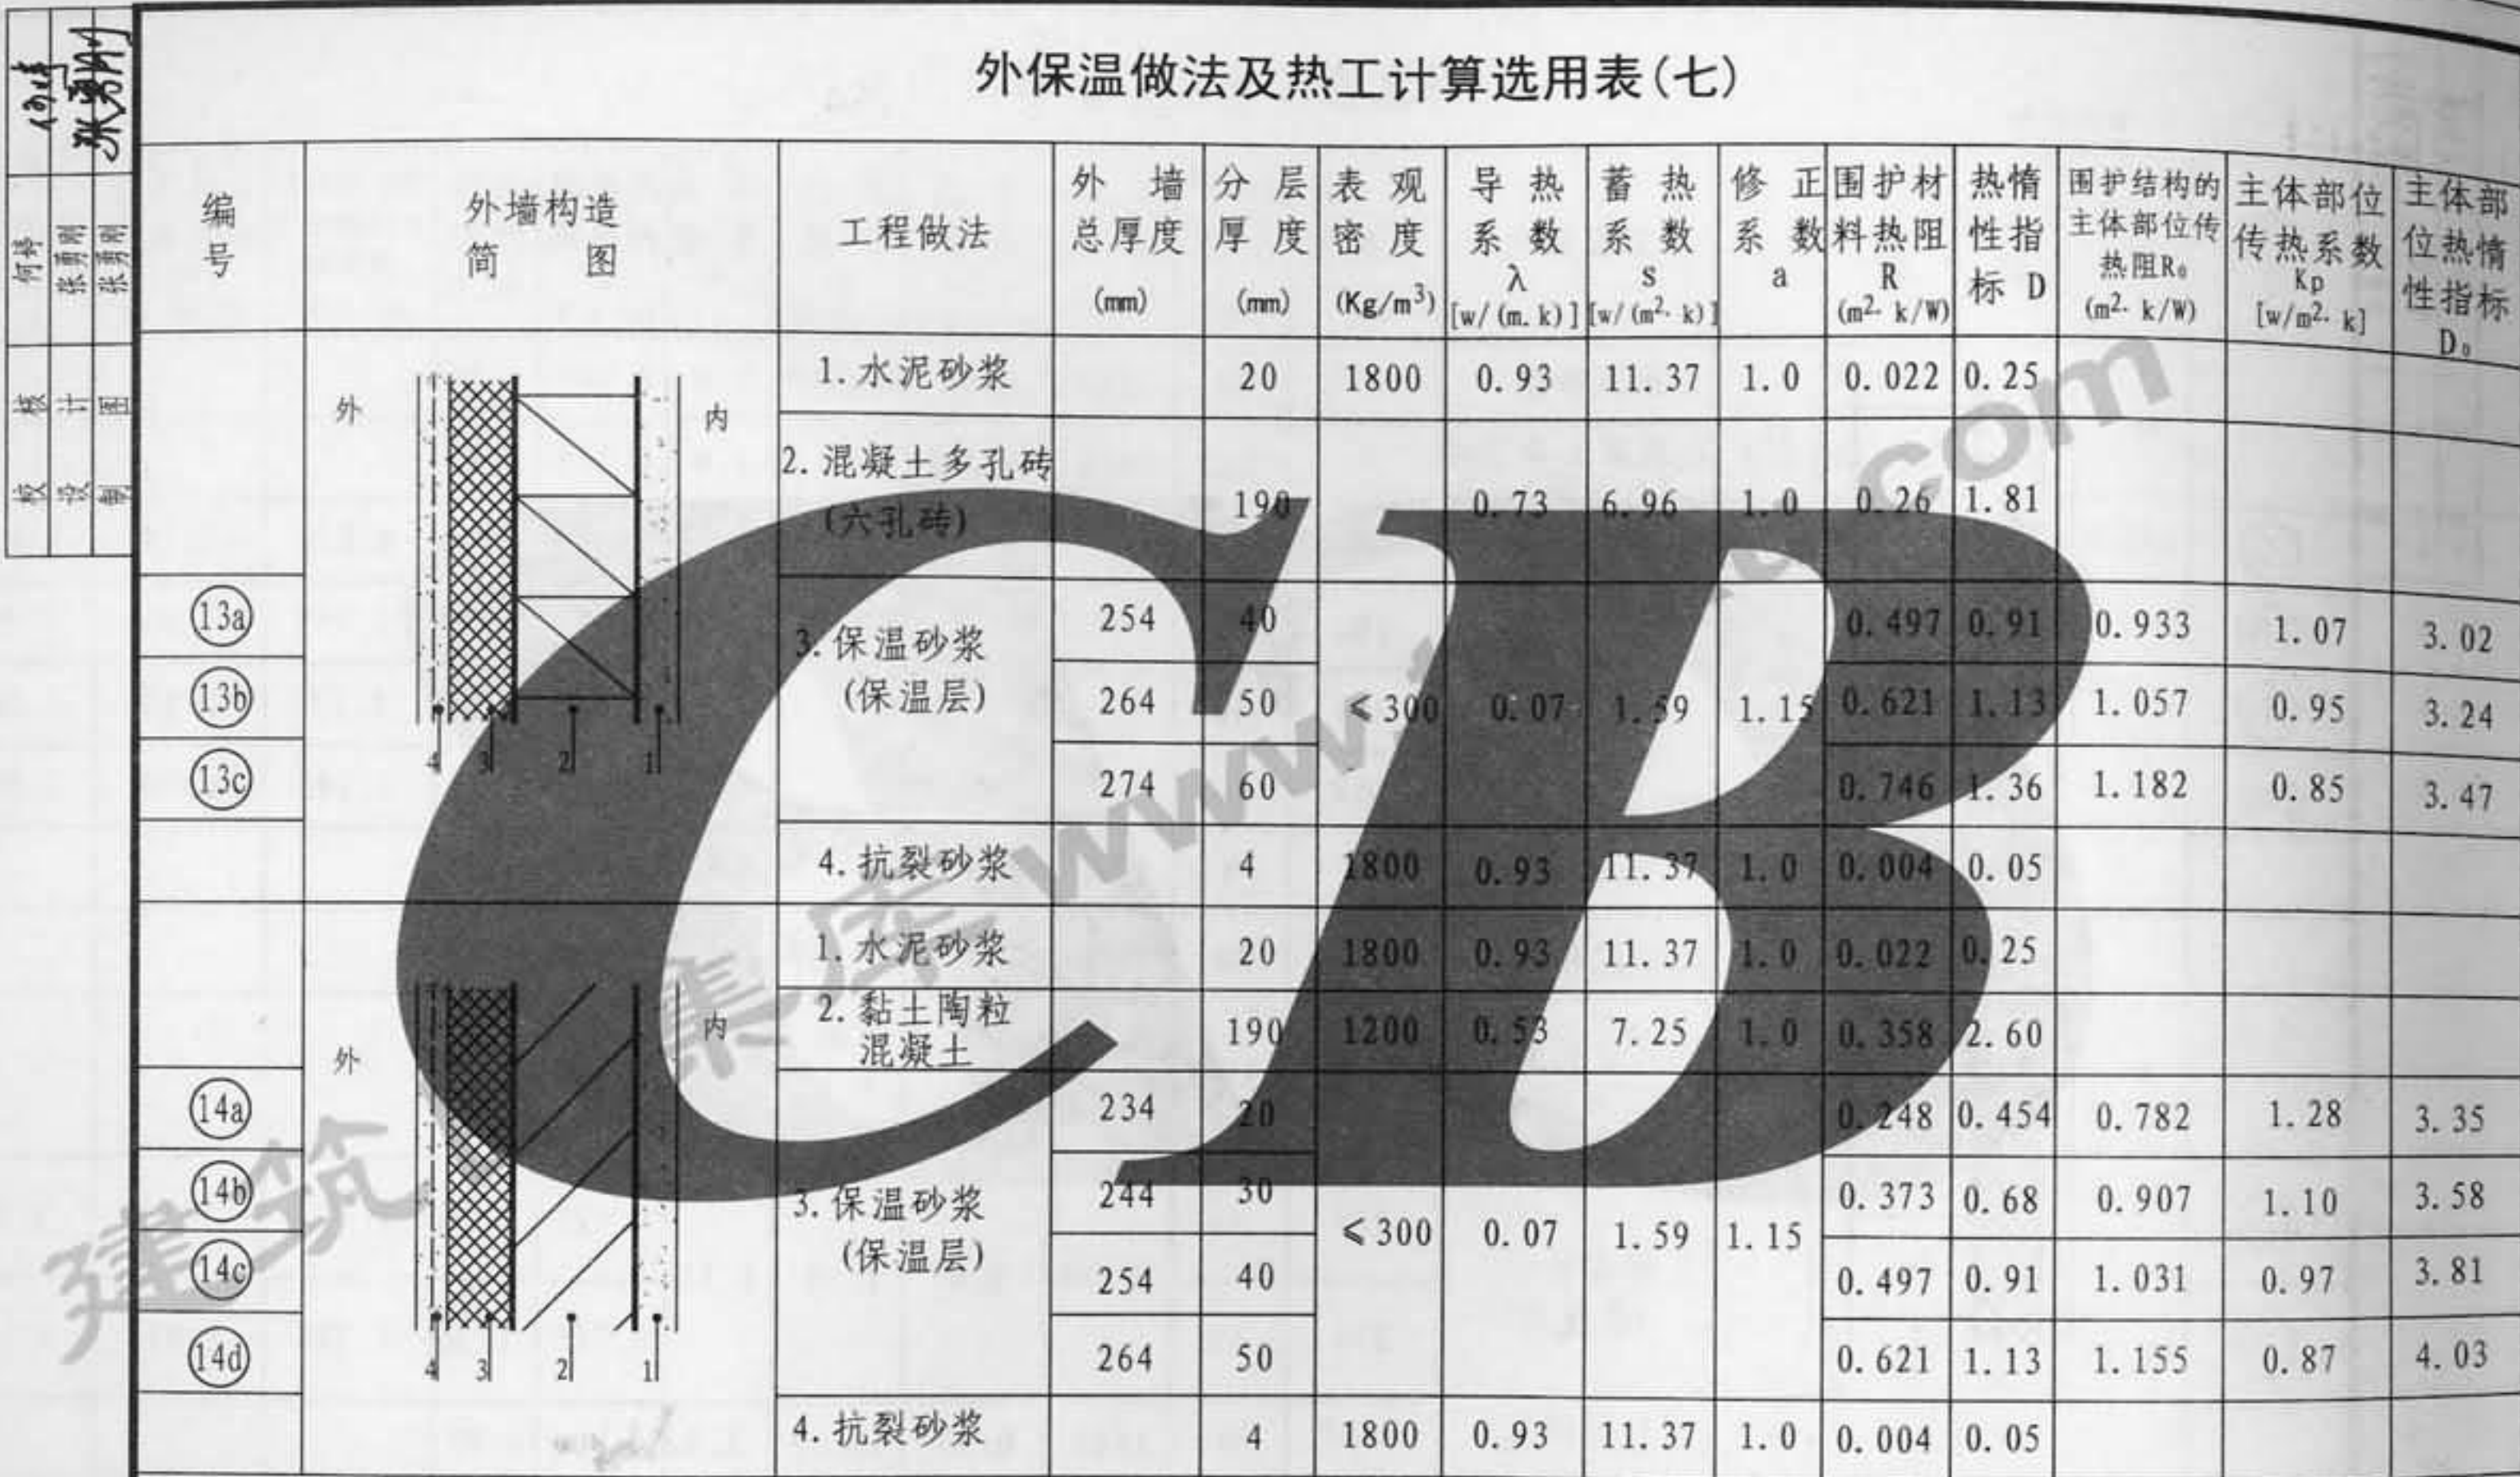 外保温做法及热工计算选用表(七)
何婷 张勇刚 张勇刚
校核 设计 制图
编号 外墙构造简图 工程做法 外墙总厚度 (mm) 分层厚度 (mm) 表观密度 (Kg/m³) 导热系数 λ [w/(m.k)] 蓄热系数 s [w/(m².k)] 修正系数 a 围护材料热阻 R (m².k/W) 热惰性指标 D 围护结构的主体部位传热阻R₀ (m².k/W) 主体部位传热系数 Kp [w/m².k] 主体部位热惰性指标 D₀
外 内
4 3 2 1
1.水泥砂浆 20 1800 0.93 11.37 1.0 0.022 0.25
2.混凝土多孔砖 (六孔砖) 190 0.73 6.96 1.0 0.26 1.81
3.保温砂浆 (保温层) ≤300 0.07 1.59 1.15
13a 254 40 0.497 0.91 0.933 1.07 3.02
13b 264 50 0.621 1.13 1.057 0.95 3.24
13c 274 60 0.746 1.36 1.182 0.85 3.47
4.抗裂砂浆 4 1800 0.93 11.37 1.0 0.004 0.05
外 内
4 3 2 1
1.水泥砂浆 20 1800 0.93 11.37 1.0 0.022 0.25
2.黏土陶粒混凝土 190 1200 0.53 7.25 1.0 0.358 2.60
3.保温砂浆 (保温层) ≤300 0.07 1.59 1.15
14a 234 20 0.248 0.454 0.782 1.28 3.35
14b 244 30 0.373 0.68 0.907 1.10 3.58
14c 254 40 0.497 0.91 1.031 0.97 3.81
14d 264 50 0.621 1.13 1.155 0.87 4.03
4.抗裂砂浆 4 1800 0.93 11.37 1.0 0.004 0.05
CB
建筑 集库 www. .com